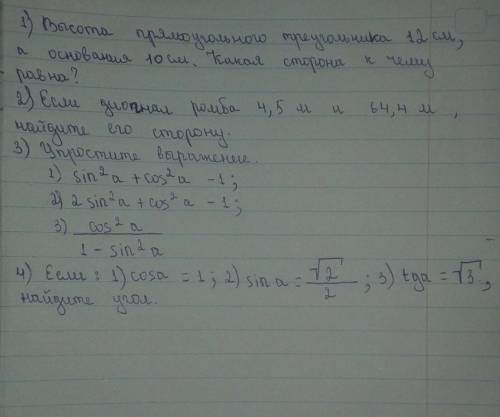 1) Высота прямоугольного треугольника 12 см,
а основания 10 см. Какая сторона к чему
равна?
2) Если диопнал ромба 4,5 м и 64,4 м,
найдите его сторону.
3) Упростите выражение.
1) sin²a + cos²a - 1;
2) 2 sin²a + cos²a - 1;
3) cos²a
1 - sin²a
4) Если: 1) cosa = 1; 2) sin a = √2/2; 3) tga = √3,
найдите угол.